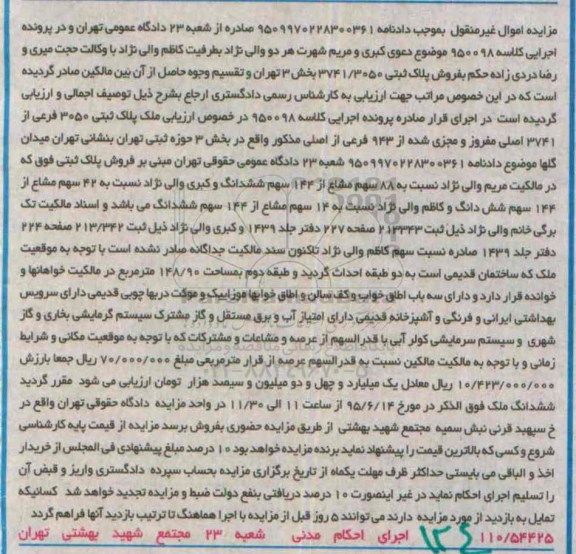 مزایده اموال غیرمنقول بموجب دادنامه ۹۵۰۹۹۷۰۲۲۸۳۰۰۳۶۱ صادره از شعبه ۲۳ دادگاه عمومی تهران و در پرونده
اجرایی کلاسه ۹۵۰۰۹۸ موضوع دعوی کبری و مریم شهرت هر دو والی نژاد بطرفیت کاظم والی نژاد با وکالت حجت میری و
رضا دردی زاده حکم بفروش پلاک ثبتی ۳۷۴۱/۳۰۵۰ بخش ۳ تهران و تقسیم وجوه حاصل از آن بین مالکین صادر گردیده
است که در این خصوص مراتب جهت ارزیابی به کارشناس رسمی دادگستری ارجاع بشرح ذیل توصیف اجمالی و ارزیابی
گردیده است در اجرای قرار صادره پرونده اجرایی کلاسه ۹۵۰۰۹۸ در خصوص ارزیابی ملک پلاک ثبتی ۳۰۵۰ فرعی از
۳۷۴۱ اصلی مفروز و مجزی شده از ۹۴۳ فرعی از اصلی مذکور واقع در بخش ۳ حوزه ثبتی تهران بنشانی تهران میدان
گلها موضوع دادنامه ۹۵۰۹۹۷۰۲۲۸۳۰۰۳۶۱ شعبه ۲۳ دادگاه عمومی حقوقی تهران مبنی بر فروش پلاک ثبتی فوق که
در مالکیت مریم والی نژاد نسبت به ۸۸ سهم مشاع از ۱۴۴ سهم ششدانگ و کبری والی نژاد نسبت به ۴۲ سهم مشاع از
۱۴۴ سهم شش دانگ و کاظم والی نژاد نسبت به ۱۴ سهم مشاع از ۱۴۴ سهم ششدانگ می باشد و اسناد مالکیت تک
برگی خانم والی نژاد ذیل ثبت ۲۱۳۳۴۳ صفحه ۲۲۷ دفتر جلد ۱۴۳۹ و کبری والی نژاد ذیل ثبت ۲۱۳/۳۴۲ صفحه ۲۲۴
دفتر جلد ۱۴۳۹ صادره نسبت سهم کاظم والی نژاد تاکنون سند مالکیت جداگانه صادر نشده است با توجه به موقعیت
ملک که ساختمان قدیمی است به دو طبقه احداث گردید و طبقه دوم بمساحت ۱۴۸/۹۰ مترمربع در مالکیت خواهانها و
خوانده قرار دارد و دارای سه باب اطاق خواب و کف سالن و اطاق خوابها موزاییک و موکت دربها چوبی قدیمی دارای سرویس
بهداشتی ایرانی و فرنگی و آشپزخانه قدیمی دارای امتیاز آب و برق مستقل و گاز مشترک سیستم گرمایشی بخاری و گاز
شهری و سیستم سرمایشی کولر آبی با قدرالسهم از عرصه و مشاعات و مشترکات که با توجه به موقعیت مکانی و شرایط
زمانی و با توجه به مالکیت مالکین نسبت به قدرالسهم عرصه از قرار مترمربعی مبلغ ۷۰/۰۰۰/۰۰۰ ریال جمعا بارزش
۱۰/۴۲۳/۰۰۰/۰۰۰ ریال معادل یک میلیارد و چهل و دو میلیون و سیصد هزار تومان ارزیابی می شود مقرر گردید
ششدانگ ملک فوق الذکر در مورخ ۹۵/۶/۱۴ از ساعت ۱۱ الی ۱۱/۳۰ در واحد مزایده دادگاه حقوقی تهران واقع در
خ سپهبد قرنی نبش سمیه مجتمع شهید بهشتی از طریق مزایده حضوری بفروش برسد مزایده از قیمت پایه کارشناسی
شروع و کسی که بالاترین قیمت را پیشنهاد نماید برنده مزایده خواهد بود ۱۰ درصد مبلغ پیشنهادی فی المجلس از خریدار
اخذ و الباقی می بایستی حداکثر ظرف مهلت یکماه از تاریخ برگزاری مزایده بحساب سپرده دادگستری واریز و قبض آن
را تسلیم اجرای احکام نماید در غیر اینصورت ۱۰ درصد دریافتی بنفع دولت ضبط و مزایده تجدید خواهد شد کسانیکه
تمایل به بازدید از مورد مزایده دارند می توانند ۵ روز قبل از مزایده با اجرا هماهنگ تا ترتیب بازدید آنها فراهم گردد
۱۱۰/۵۴۴۲۵ اجرای احکام مدنی شعبه ۲۳ مجتمع شهید بهشتی تهران